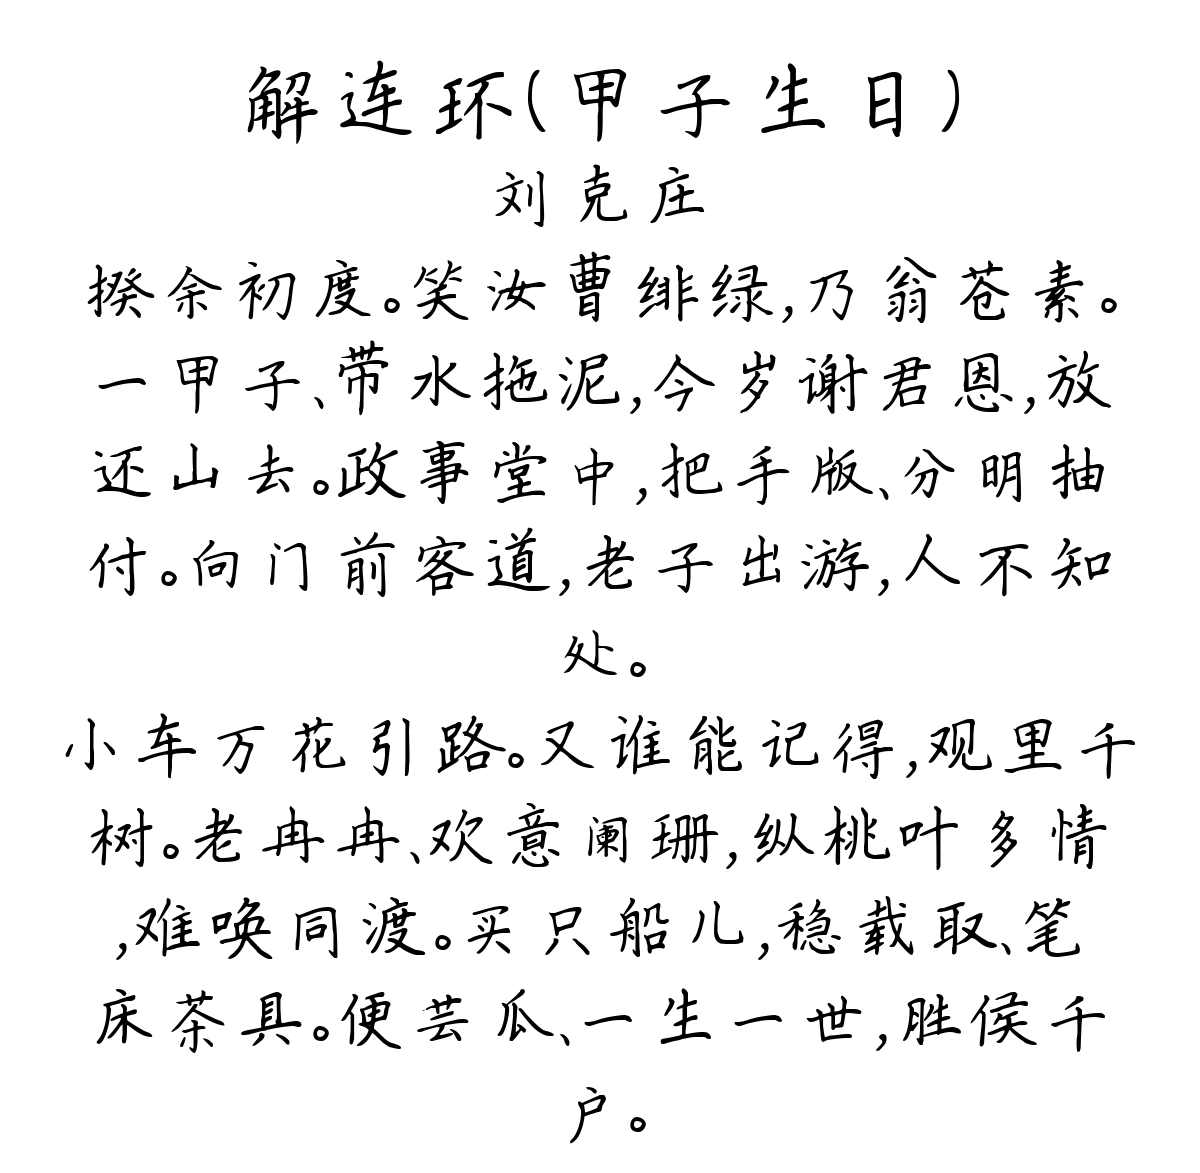 解连环(甲子生日)
刘克庄
揆余初度。笑汝曹绯绿,乃翁苍素。
一甲子、带水拖泥,今岁谢君恩,放
还山去。政事堂中,把手版、分明抽
付。向门前客道,老子出游,人不知
处。
小车万花引路。又谁能记得,观里千
树。老冉冉、欢意阑珊,纵桃叶多情
,难唤同渡。买只船儿,稳载取、笔
床茶具。便芸瓜、一生一世,胜侯千
户。